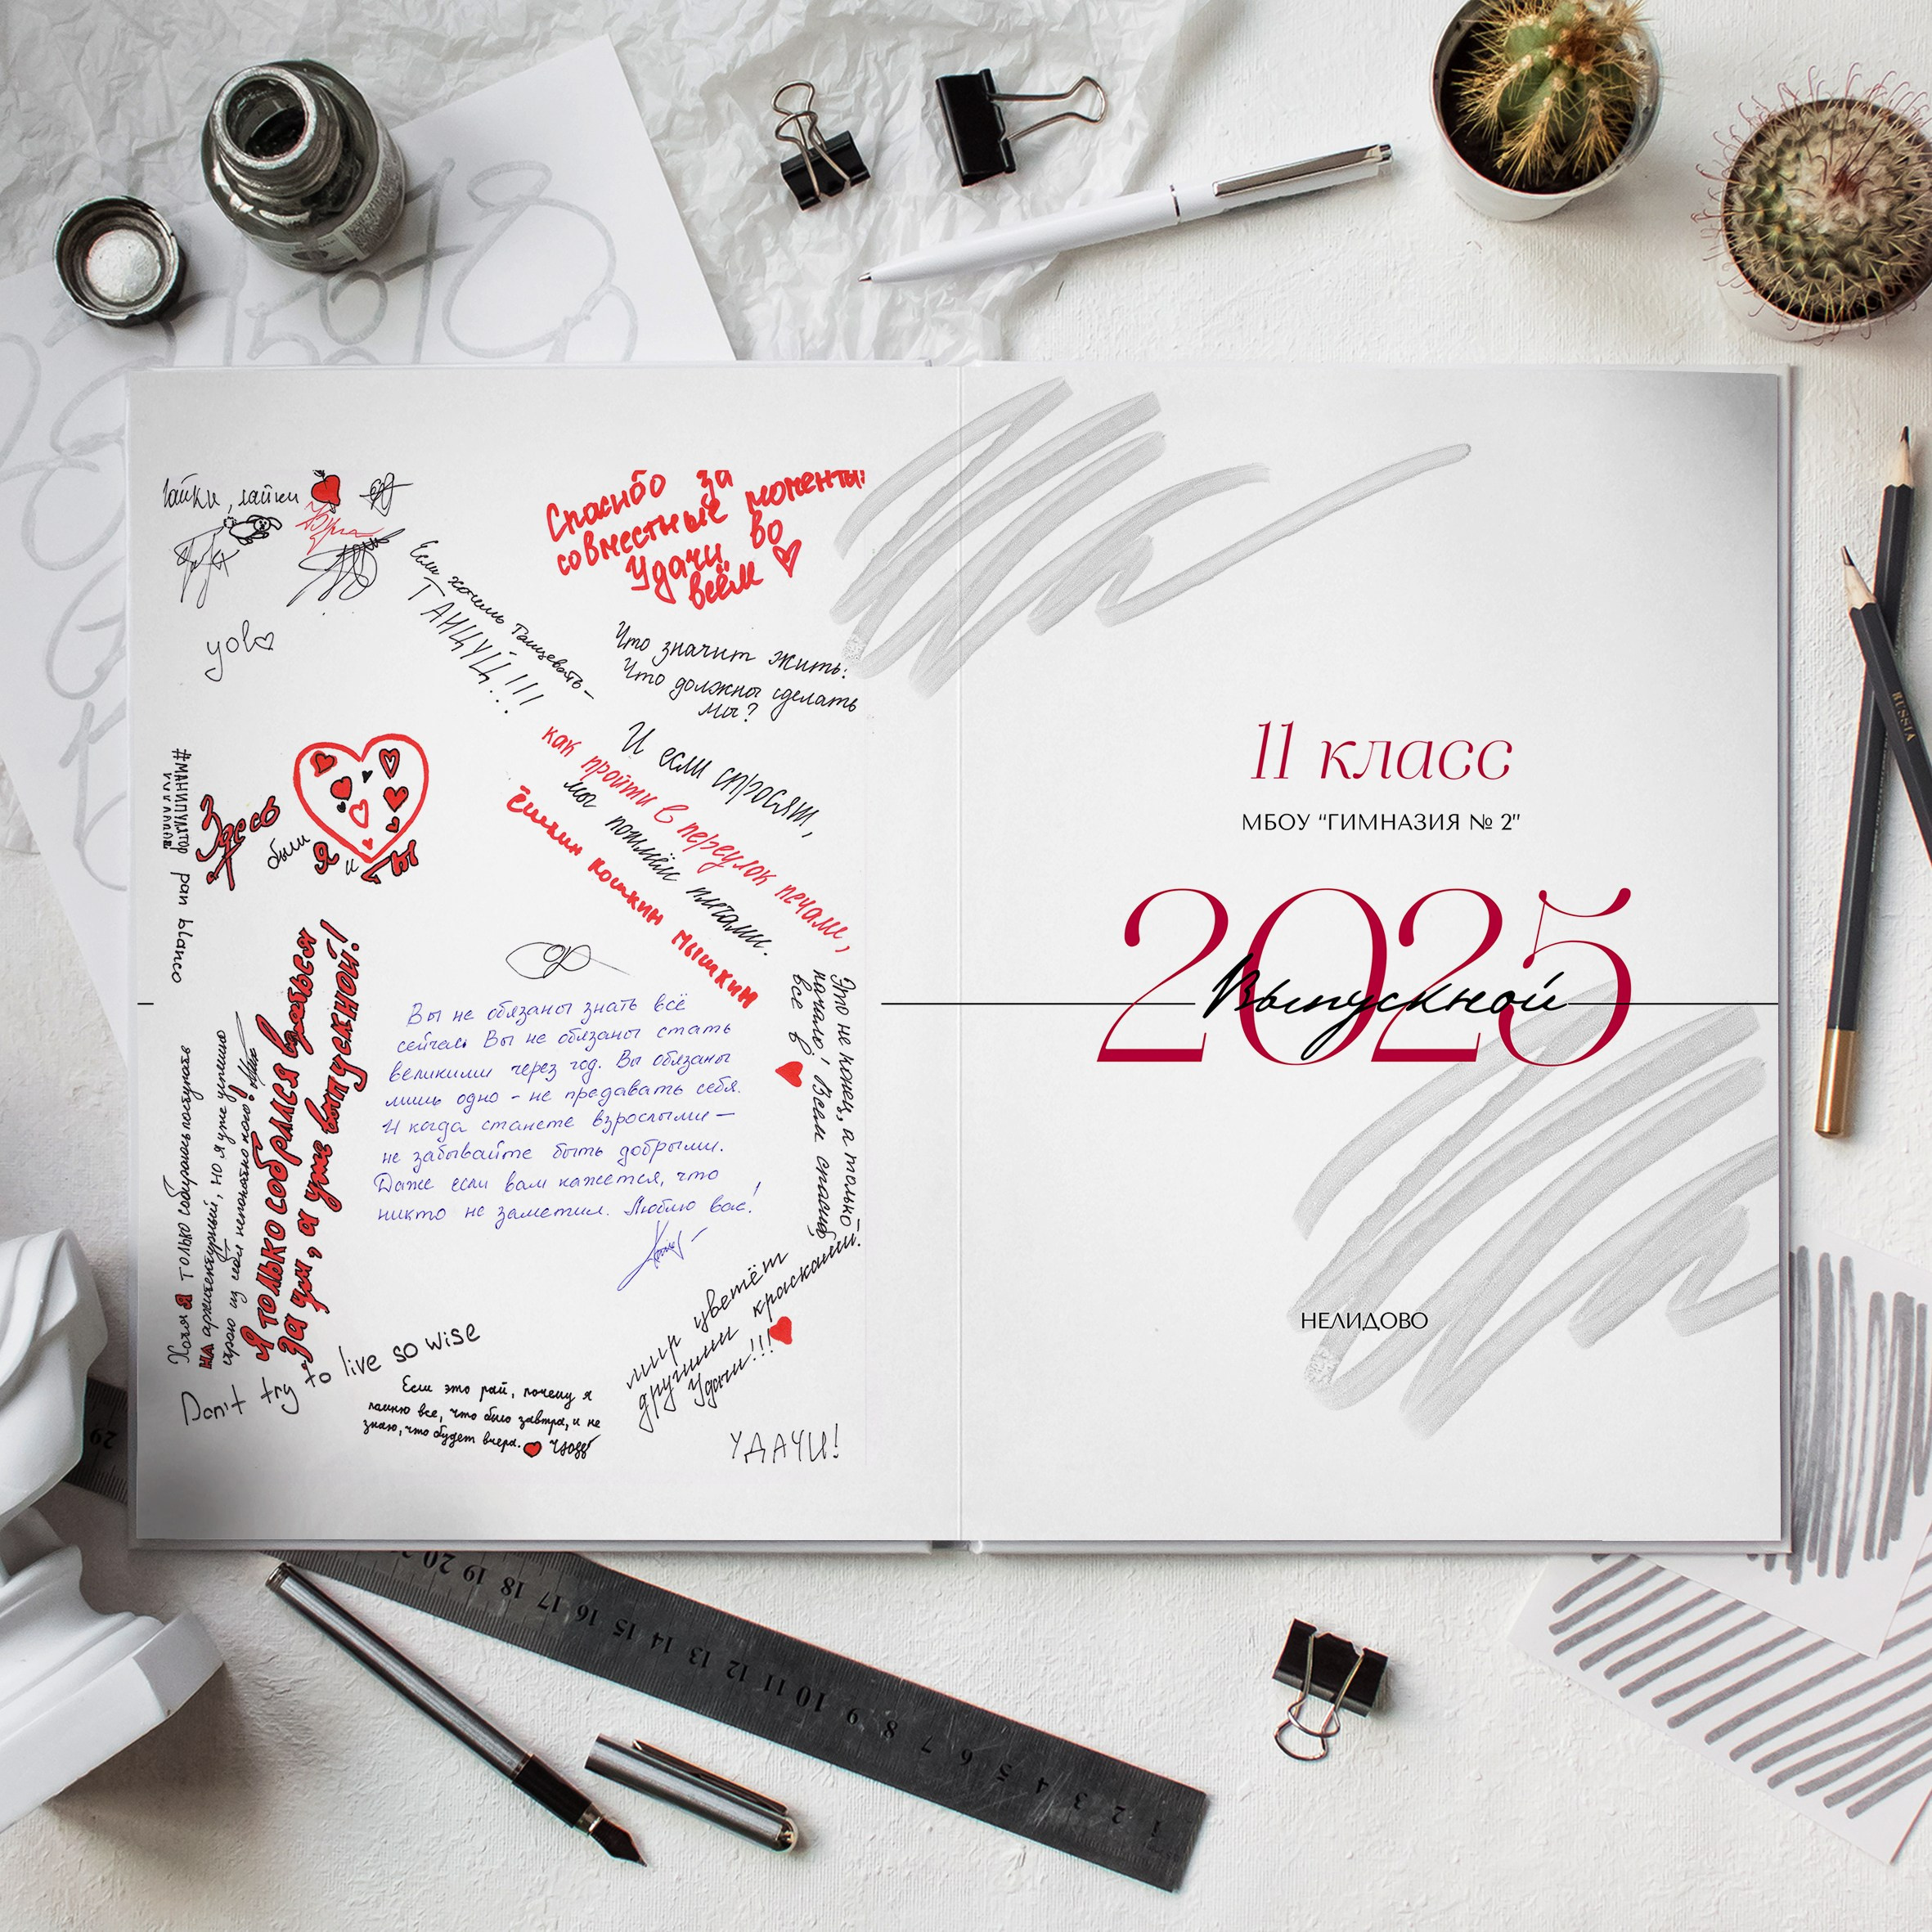 лайки, лайки
yolo
Если хочешь танцевать –
ТАНЦУЙ!!!
Спасибо за
совместные моменты!
Удачи во
всём
Что значит жить:
Что должны сделать
мы?
И если спросят,
как пройти в переулок печали,
мы пошлём
ёшкин кошкин мышкин
#МАНИПУЛЯТОР
pan blanco
Здесь
были Я и ТЫ
Вы не обязаны знать всё
сейчас. Вы не обязаны стать
великими через год. Вы обязаны
лишь одно – не предавать себя.
И когда станете взрослыми –
не забывайте быть добрыми.
Даже если вам кажется, что
никто не заметил. Люблю вас!
Это не конец, а только
начало! Всем спасибо,
все в
Хотя я только собираюсь поступать
на архитектурный, но я уже успешно
строю из себя непонятно кого!
Я только собрался взяться
за ум, а уже выпускной!
Don't try to live so wise
Если это рай, почему я
помню все, что было завтра, и не
знаю, что будет вчера.
мир цветёт
другими красками.
Удачи!!!
УДАЧИ!
11 класс
МБОУ "ГИМНАЗИЯ № 2"
2025
Выпускной
НЕЛИДОВО
RUSSIA
29
20 19 18 17 16 15 14 13 12 11 10 9 8 7 6 5 4 3 2 1